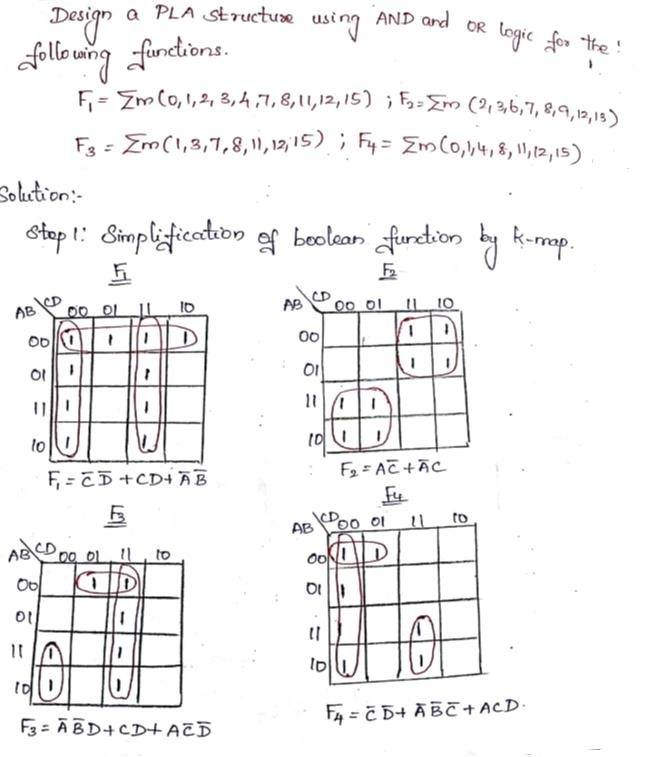 Design a PLA structure using AND and OR logic for the
following functions.
F₁ = Σm(0,1,2,3,4,7,8,11,12,15) ; F₂=Σm (2,3,6,7,8,9,12,13)
F₃ = Σm(1,3,7,8,11,12,15) ; F₄= Σm(0,1,4,8,11,12,15)
Solution:-
Step 1: Simplification of boolean function by k-map.
F₁ F₂
AB CD 00 01 11 10
00 1 1 1 1
01 1 1
11 1 1
10 1 1
F₁ = C̅D̅ + CD + A̅B̅
AB CD 00 01 11 10
00 1 1
01 1 1
11 1 1
10 1 1
F₂ = AC̅ + A̅C
F₃
AB CD 00 01 11 10
00 1 1
01 1
11 1 1
10 1 1
F₃ = A̅B̅D + CD + AC̅D̅
F₄
AB CD 00 01 11 10
00 1 1
01 1
11 1 1
10 1 1
F₄ = C̅D̅ + A̅B̅C̅ + ACD.